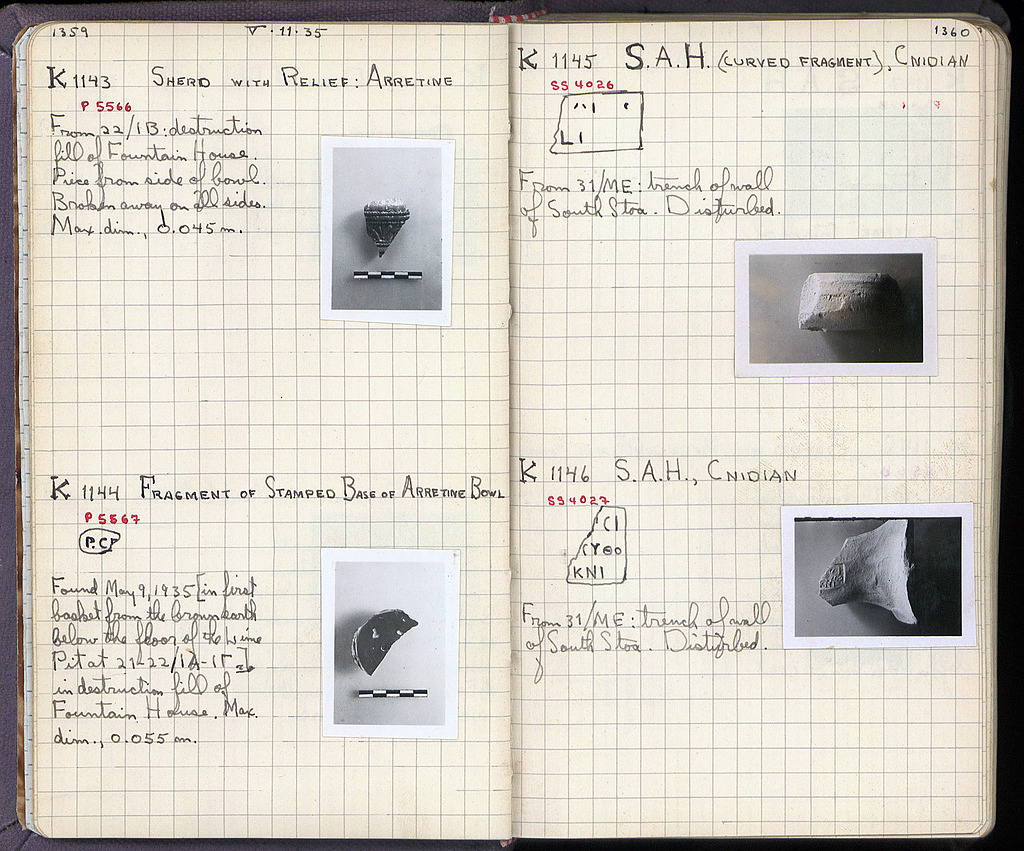 1359
V · 11 · 35
K 1143 SHERD WITH RELIEF: ARRETINE
P 5566
From 22/IB: destruction
fill of Fountain House.
Piece from side of bowl.
Broken away on all sides.
Max. dim., 0.045 m.
K 1144 FRAGMENT OF STAMPED BASE OF ARRETINE BOWL
P 5567
P.CF
Found May 9, 1935 [in first
basket from the brown earth
below the floor of the Wine
Pit at 21-22/ΙΑ-ΙΓ]
in destruction fill of
Fountain House. Max.
dim., 0.055 m.
1360
K 1145 S.A.H. (CURVED FRAGMENT), CNIDIAN
SS 4026
LI
From 31/ME: trench of wall
of South Stoa. Disturbed.
K 1146 S.A.H., CNIDIAN
SS 4027
CI
CYΘO
KNI
From 31/ME: trench of wall
of South Stoa. Disturbed.